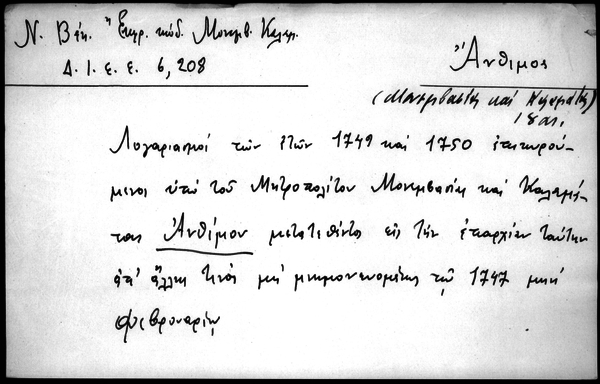 Ν. Βέη. "Εκφρ. κώδ. Μονεμβ. Καλαμ.
Δ. Ι. Ε. Ε. 6, 208
Ἄνθιμος
(Μονεμβασίας καὶ Καλαμάτας)
18 αἰ.
Λογαριασμοί τῶν ἐτῶν 1749 καί 1750 ἐπικυρού-
μενοι ὑπό τοῦ Μητροπολίτου Μονεμβασίας καί Καλαμά-
τας Ἀνθίμου μετατεθέντος εἰς τήν ἐπαρχίαν ταύτην
ἀπ' ἄλλης τινός μή μνημονευομένης τῷ 1747 μηνί
Φεβρουαρίῳ